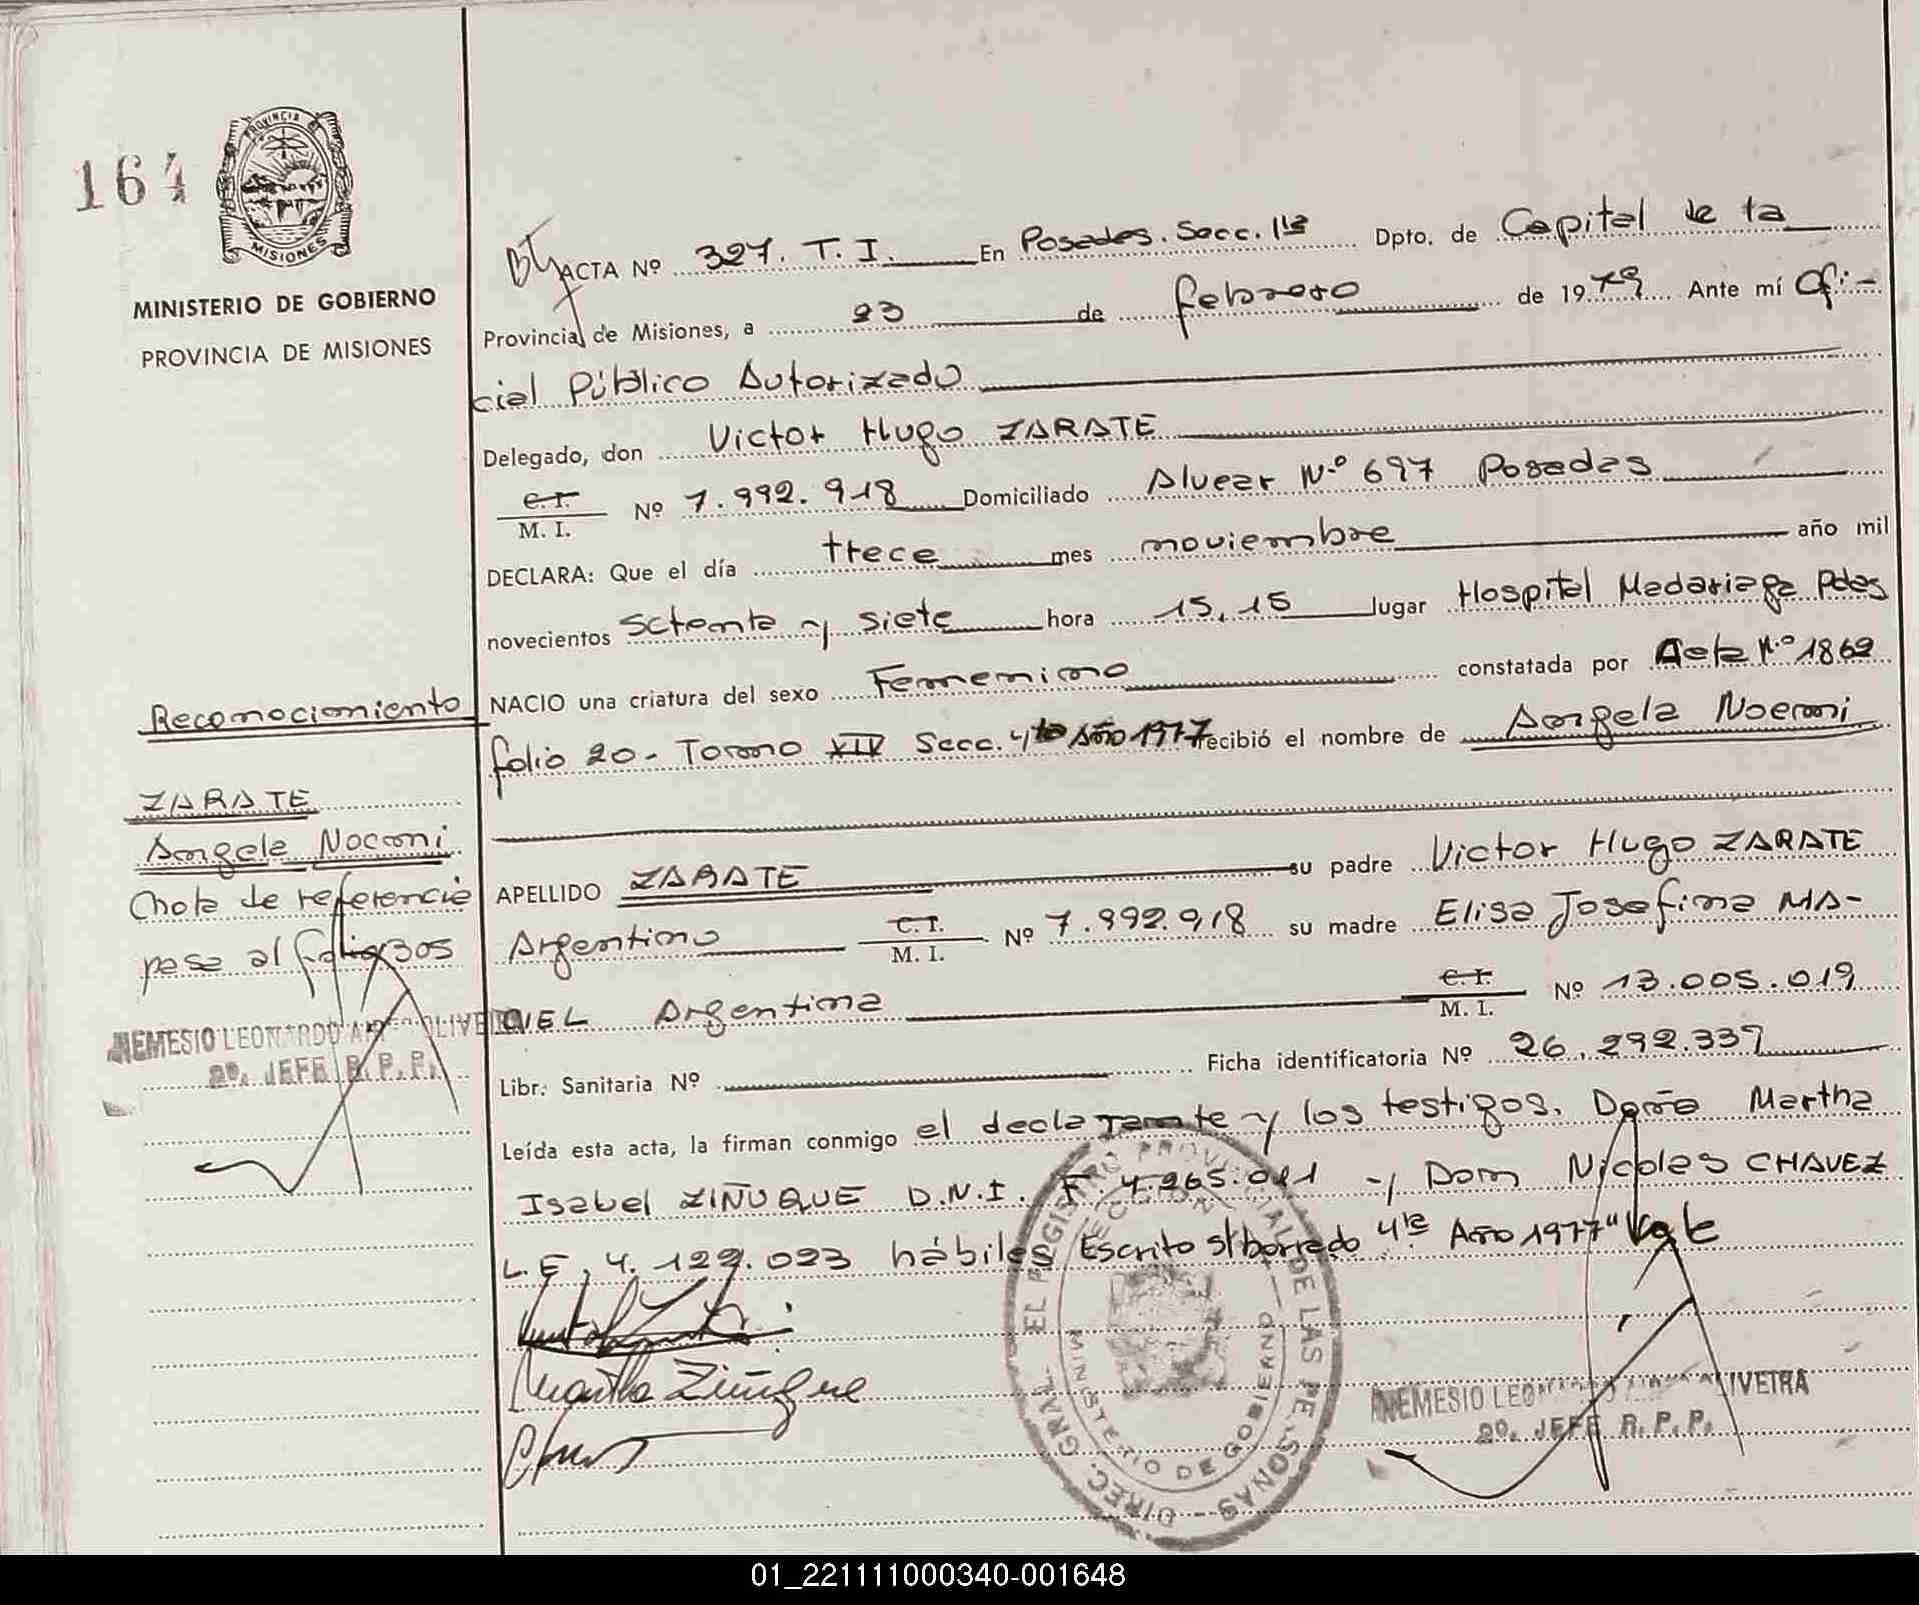 164
PROVINCIA DE
MISIONES
MINISTERIO DE GOBIERNO
PROVINCIA DE MISIONES
ACTA Nº 327. T. I. En Posadas. Secc. 1ra Dpto. de Capital de la
Provincia de Misiones, a 23 de febrero de 1979 Ante mí Ofi-
cial Público Autorizado
Delegado, don Victor Hugo ZARATE
C.I.
M. I. Nº 7.992.918 Domiciliado Alvear N.º 697 Posadas
DECLARA: Que el día trece mes noviembre año mil
novecientos setenta y siete hora 15,15 lugar Hospital Madariaga Pdas
NACIO una criatura del sexo Femenino constatada por Acta N.º 1869
folio 20 - Tomo XIV Secc. 4ta Año 1977 recibió el nombre de Angela Noemi
APELLIDO ZARATE su padre Victor Hugo ZARATE
Argentino C.I.
M. I. Nº 7.992.918 su madre Elisa Josefina MA-
CIEL Argentina C.I.
M. I. Nº 13.005.019
Libr. Sanitaria Nº Ficha identificatoria Nº 26.292.337
Leída esta acta, la firman conmigo el declarante y los testigos. Doña Martha
Isabel ZIÑUQUE D.N.I. F. 4.965.021 y Don Nicolas CHAVEZ
L.E. 4.122.023 hábiles Escrito s/borrado 4ta Año 1977" Vale
Martha Ziñuque
Reconocimiento
ZARATE
Angela Noemi
Nota de referencia
pasa al folio 305
NEMESIO LEONARDO OLIVEIRA
2º. JEFE R. P. P.
DIREC. GRAL. EL REGISTRO PROVINCIAL DE LAS PERSONAS
MINISTERIO DE GOBIERNO
NEMESIO LEONARDO OLIVEIRA
2º. JEFE R. P. P.
01_221111000340-001648